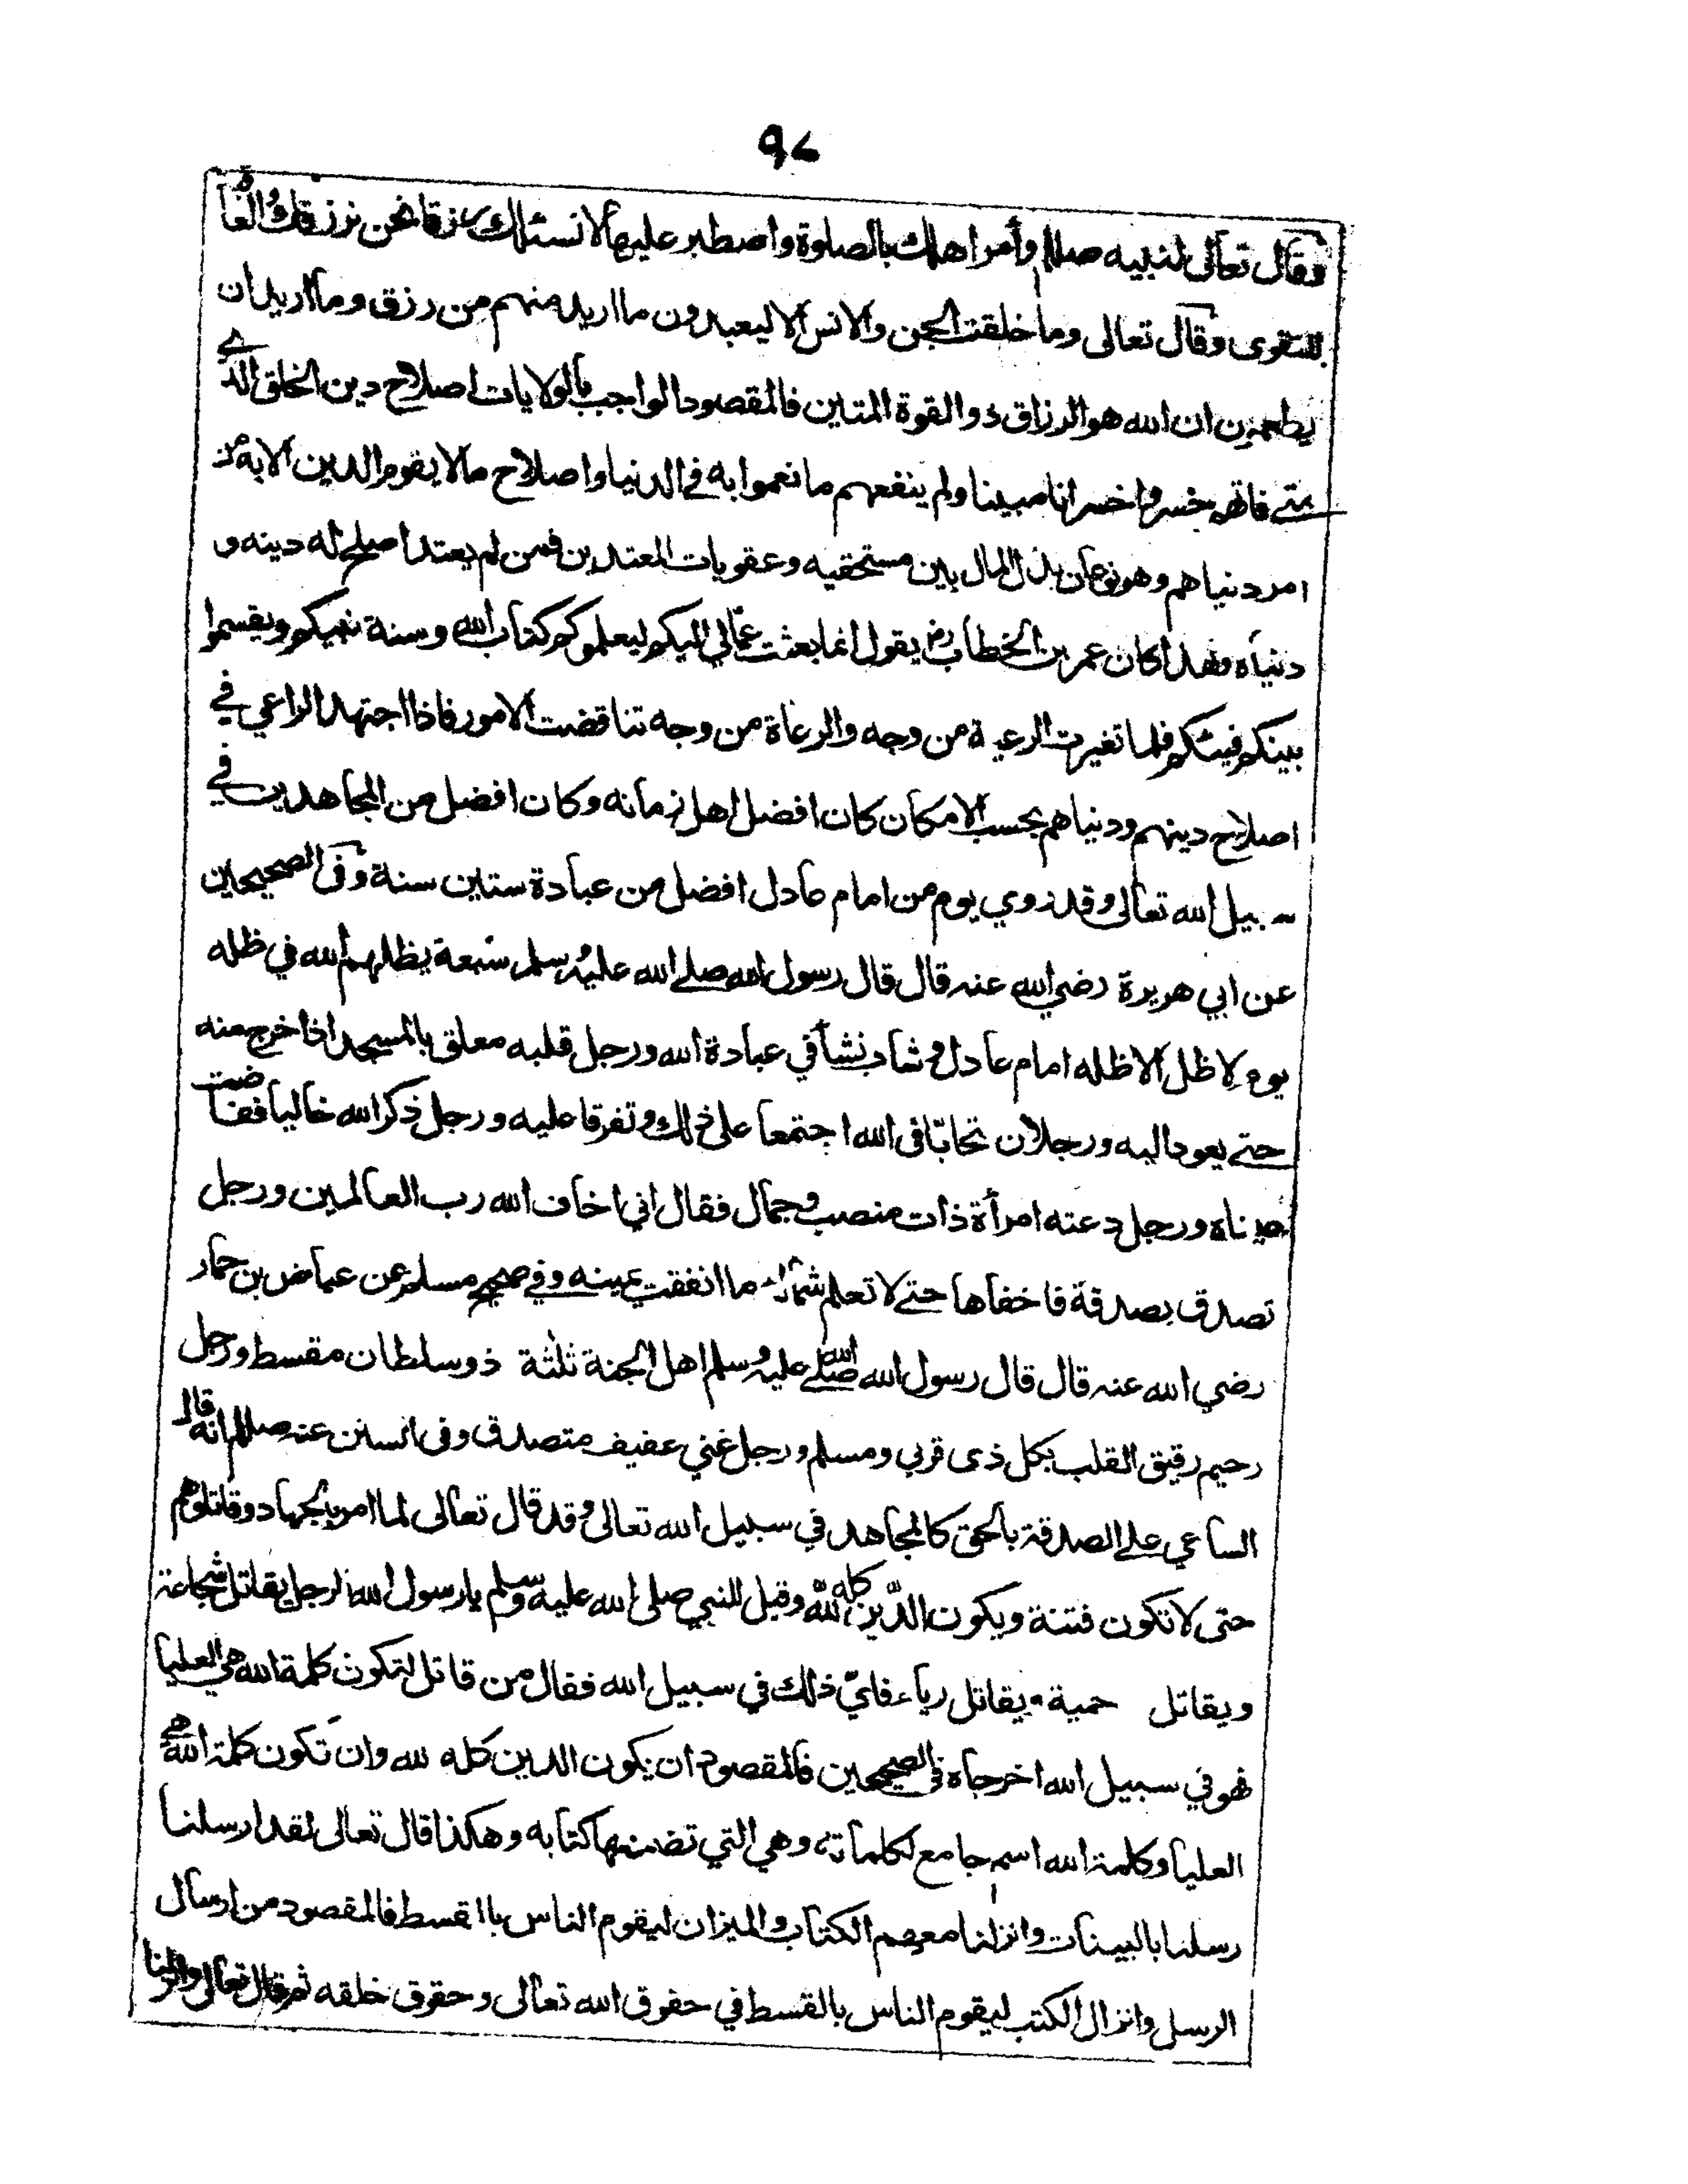 ٩٤
وقال تعالى لنبيه صللم وأمر اهلك بالصلوة واصطبر عليها لا نسئلك رزقا نحن نرزقك والعا
للتقوى وقال تعالى وما خلقت الجن والانس الا ليعبدون ما اريد منهم من رزق وما اريد ان
يطعمون ان الله هو الرزاق ذو القوة المتين فالمقصود الواجب بالولايات اصلاح دين الخلق الذي
متى فاتهم خسروا خسرانا مبينا ولم ينفعهم ما نعموا به في الدنيا واصلاح ما لا يقوم الدين الا به من
امر دنياهم وهو نوعان بذل المال بين مستحقيه وعقوبات المعتدين فمن لم يعتد اصلح له دينه و
دنياه ولهذا كان عمر بن الخطاب رض يقول انما بعثت عمالي اليكم ليعلموكم كتاب الله وسنة نبيكم ويقسموا
بينكم فيئكم فلما تغيرت الرعية من وجه والرعاة من وجه تناقضت الامور فاذا اجتهد الراعي في
اصلاح دينهم ودنياهم بحسب الامكان كان افضل اهل زمانه وكان افضل من المجاهدين في
سبيل الله تعالى وقد روي يوم من امام عادل افضل من عبادة ستين سنة وفى الصحيحين
عن ابي هريرة رضي الله عنه قال قال رسول الله صلى الله عليه وسلم سبعة يظلهم الله في ظله
يوم لا ظل الا ظله امام عادل وشاب نشأ في عبادة الله ورجل قلبه معلق بالمسجد اذا خرج منه
حتى يعود اليه ورجلان تحابّا فى الله اجتمعا على ذلك وتفرقا عليه ورجل ذكر الله خاليا ففاضت
عيناه ورجل دعته امرأة ذات منصب وجمال فقال اني اخاف الله رب العالمين ورجل
تصدق بصدقة فاخفاها حتى لا تعلم شماله ما انفقت يمينه وفي صحيح مسلم عن عياض بن حمار
رضي الله عنه قال قال رسول الله صلى الله عليه وسلم اهل الجنة ثلثة ذو سلطان مقسط ورجل
رحيم رقيق القلب بكل ذى قربي ومسلم ورجل غني عفيف متصدق وفى السنن عنه صللم انه قال
الساعي على الصدقة بالحق كالمجاهد في سبيل الله تعالى وقد قال تعالى لما امر بالجهاد وقاتلوهم
حتى لا تكون فتنة ويكون الدّين كله لله وقيل للنبي صلى الله عليه وسلم يا رسول الله الرجل يقاتل شجاعة
ويقاتل حمية ويقاتل رياء فايّ ذلك في سبيل الله فقال من قاتل لتكون كلمة الله هي العليا
فهو في سبيل الله اخرجاه في الصحيحين فالمقصود ان يكون الدين كله لله وان تكون كلمة الله هي
العليا وكلمة الله اسم جامع لكلماته وهي التي تضمنها كتابه وهكذا قال تعالى لقد ارسلنا
رسلنا بالبينات وانزلنا معهم الكتاب والميزان ليقوم الناس بالقسط فالمقصود من ارسال
الرسل وانزال الكتب ليقوم الناس بالقسط في حقوق الله تعالى وحقوق خلقه ثم قال تعالى وانزلنا